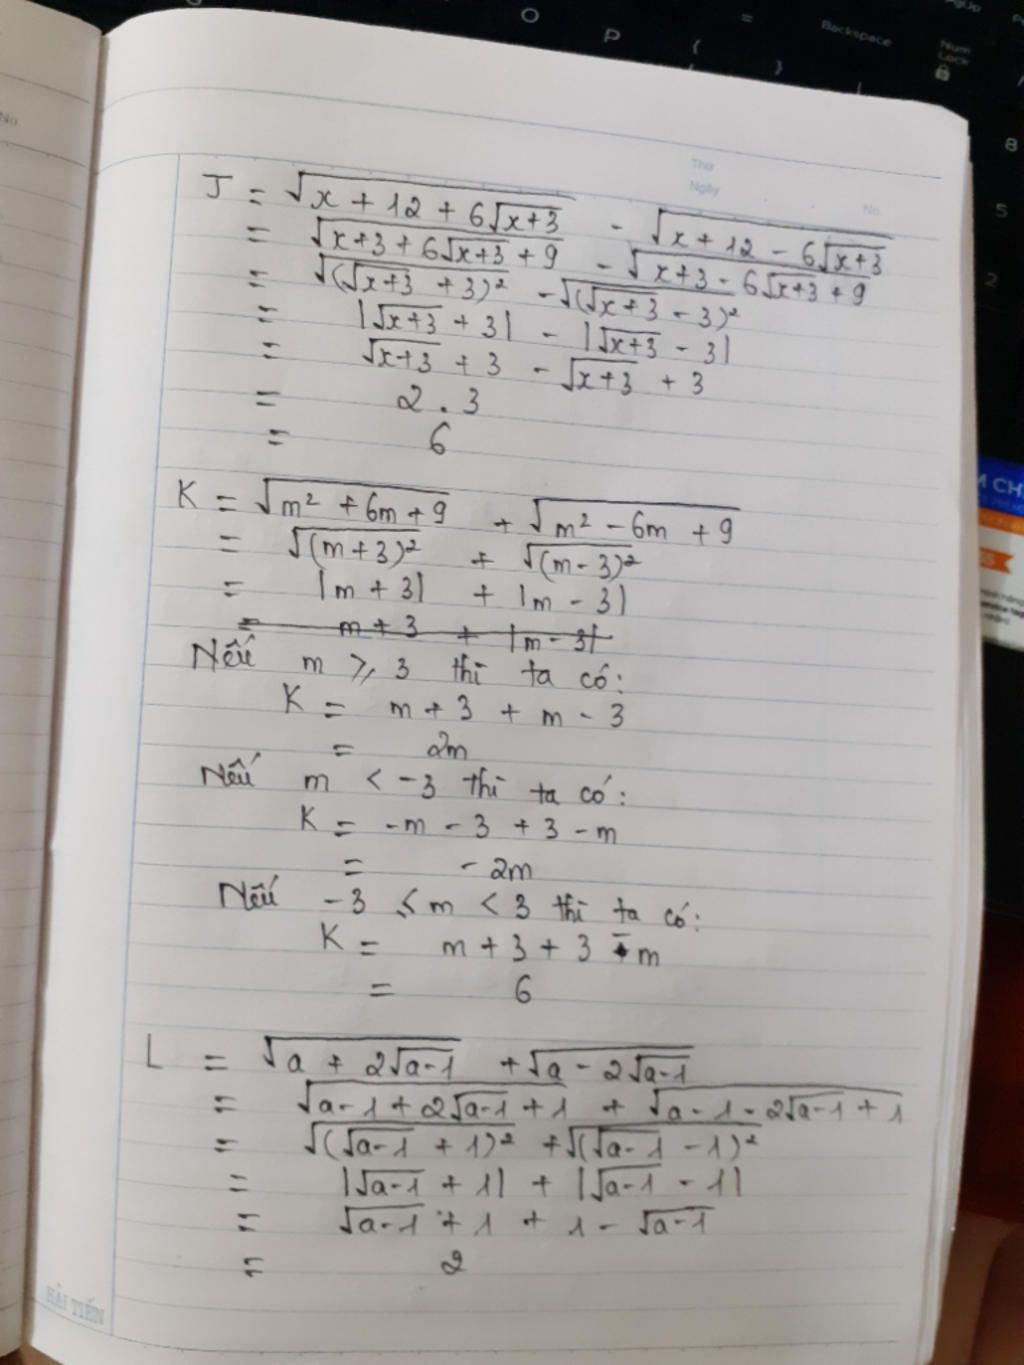 O
P
=
Backspace
Num
Lock
8
5
2
No.
Thứ
Ngày
No.
J = √(x + 12 + 6√(x+3)) - √(x + 12 - 6√(x+3))
= √(x+3 + 6√(x+3) + 9) - √(x+3 - 6√(x+3) + 9)
= √((√(x+3) + 3)²) - √((√(x+3) - 3)²)
= |√(x+3) + 3| - |√(x+3) - 3|
= √(x+3) + 3 - √(x+3) + 3
= 2 . 3
= 6
K = √(m² + 6m + 9) + √(m² - 6m + 9)
= √((m+3)²) + √((m-3)²)
= |m + 3| + |m - 3|
= m + 3 + |m - 3|
Nếu m ⩾ 3 thì ta có:
K = m + 3 + m - 3
= 2m
Nếu m < -3 thì ta có:
K = -m - 3 + 3 - m
= -2m
Nếu -3 ⩽ m < 3 thì ta có:
K = m + 3 + 3 - m
= 6
L = √(a + 2√(a-1)) + √(a - 2√(a-1))
= √(a-1 + 2√(a-1) + 1) + √(a-1 - 2√(a-1) + 1)
= √((√(a-1) + 1)²) + √((√(a-1) - 1)²)
= |√(a-1) + 1| + |√(a-1) - 1|
= √(a-1) + 1 + 1 - √(a-1)
= 2
HẢI TIẾN